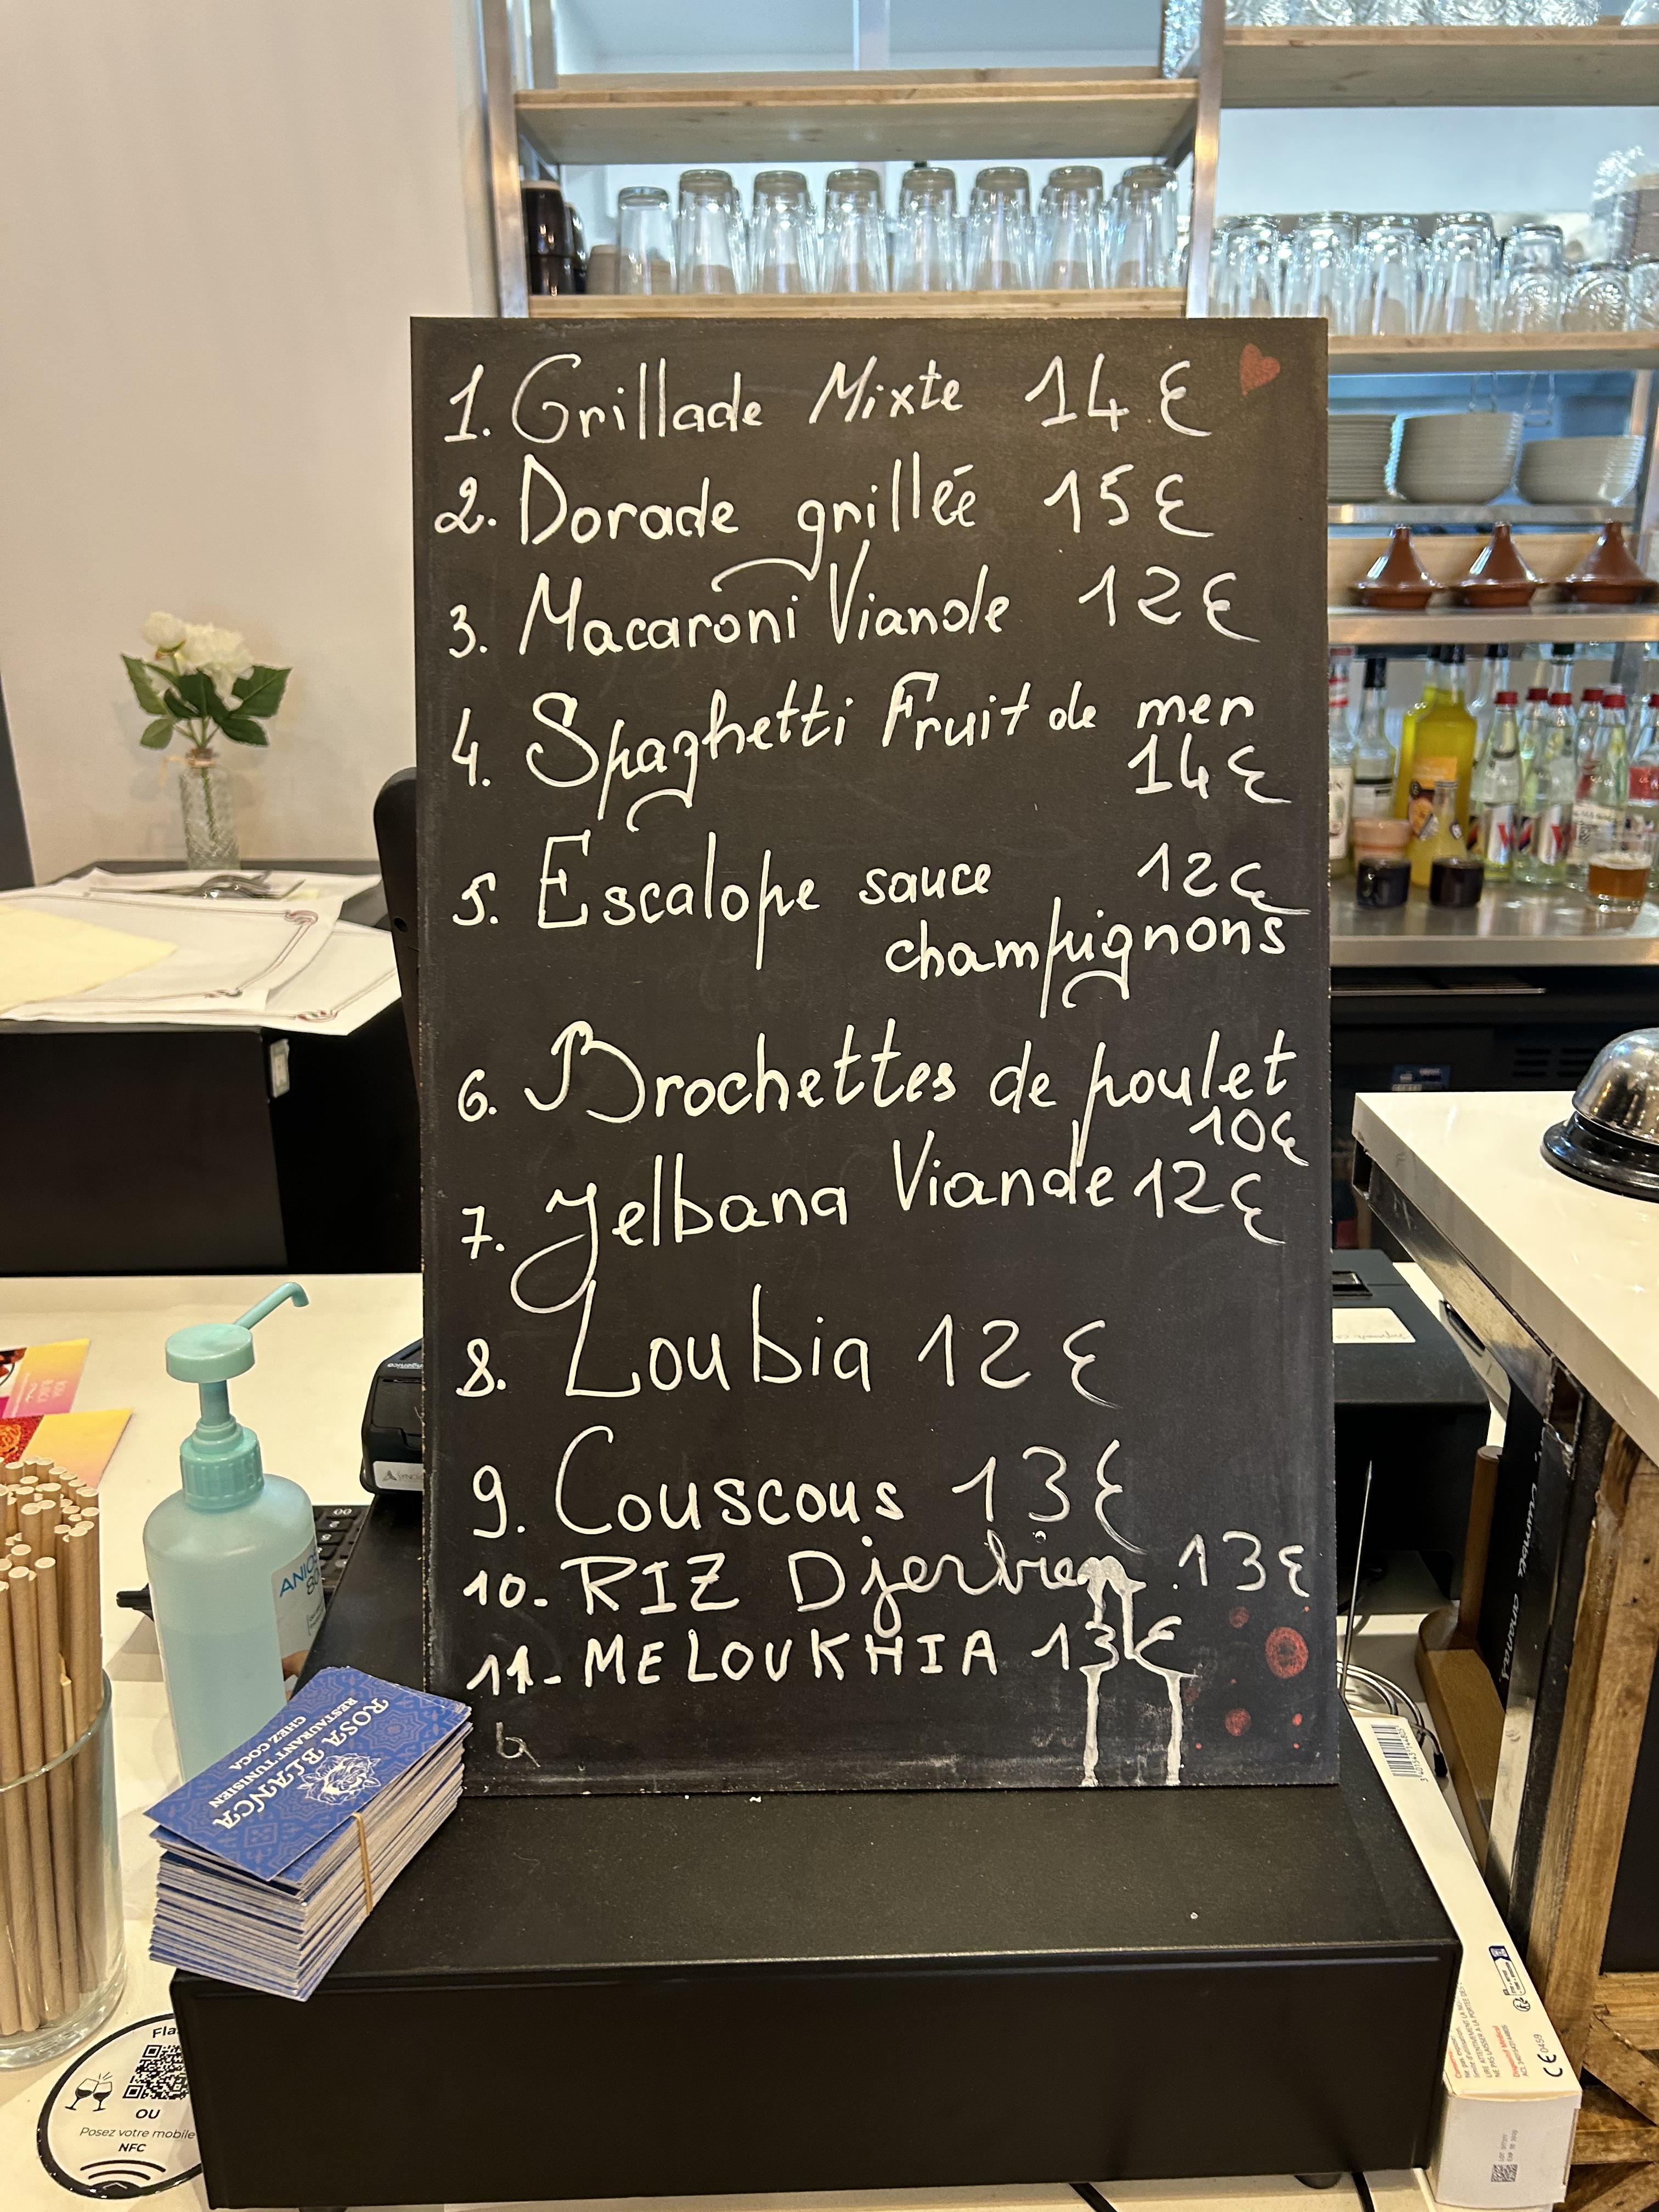 1. Grillade Mixte 14 €
2. Dorade grillée 15 €
3. Macaroni Viande 12 €
4. Spaghetti Fruit de mer
14 €
5. Escalope sauce 12 €
champignons
6. Brochettes de poulet
10€
7. Jelbana Viande 12 €
8. Loubia 12 €
9. Couscous 13 €
10. RIZ Djerbien 13€
11- MELOUKHIA 13 €
ROSA BLANCA
RESTAURANT TUNISIEN
CHEZ COCA
OU
Posez votre mobile
NFC
CE 0459